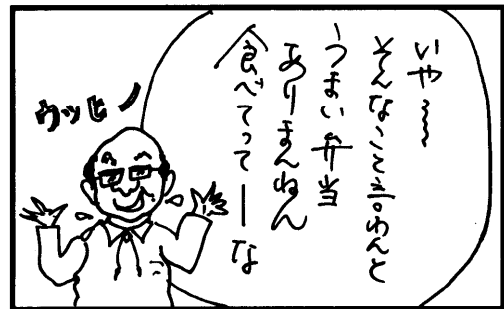 いや〜〜
そんなこと言わんと
うまい弁当
ありまんねん
食べてってーな
ウッヒー